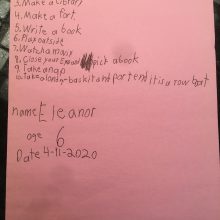 3. Make a library
4. Make a fort
5. Write a book
6. Play outside
7. Watch a
8. Close your pick a book
9. Take a nap
10. take a long baskit and portend it is a row boat
name Eleanor
age 6
Date 4-11-2020